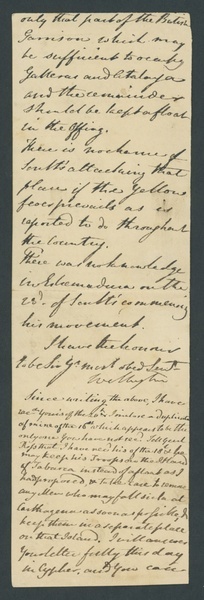 only that part of the British
Garrison which may
be sufficient to occupy
and the remainder
should be kept afloat
in the Offing.
There is no chance of
Soult's attacking that
place if the Yellow
fever prevails as is
reported to do throughout
the Country.
There was no knowledge
in Estremadura on the
22d. of Soult's commencing
his movement.
I have the honor
to be
Wellington
Since writing the above, I have
of the
of mine of the 16th which appears to be the
only one you have not recd. Tell Genl
that I have
may keep his Troops on the Island
of Tabarca instead of afloat as I
had proposed, & take care to
any Men who may fall sick at
Carthagena as soon as possible, &
keep them in a separate place
on that Island. I will answer
your letter fully this day
in Cypher, and you can